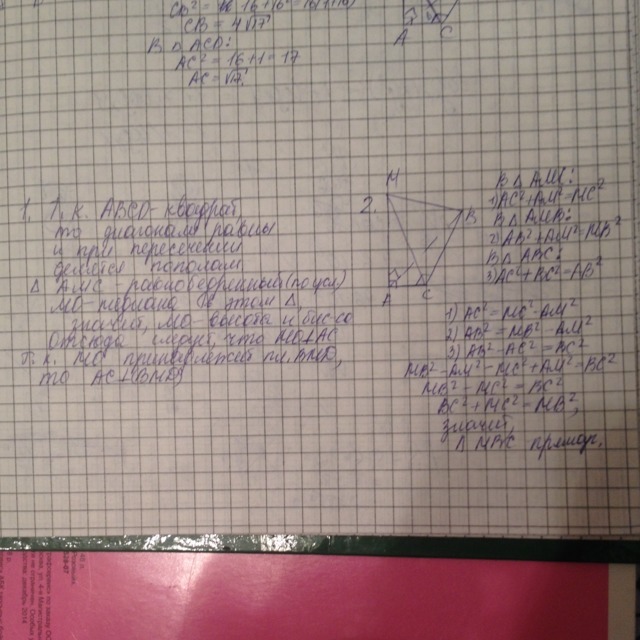 CB = 4√17
В Δ ACD:
AC² = 16+1 = 17
AC = √17
A
C
1. Т.к. ABCD - квадрат
то диагонали равны
и при пересечении
делятся пополам
Δ AMC - равнобедренный (по усл)
MO - медиана в этом Δ,
значит, MO высота и бис-са
Отсюда следует, что MO⊥AC
Т.к. MO принадлежит пл. BMD,
то AC⊥(BMD)
2.
M
B
A
C
В Δ AMC:
1) AC²+AM²=MC²
В Δ AMB:
2) AB²+AM²=MB²
В Δ ABC:
3) AC²+BC²=AB²
1) AC²=MC²-AM²
2) AB²=MB²-AM²
3) AB²-AC²=BC²
MB²-AM²-MC²+AM²=BC²
MB²-MC²=BC²
BC²+MC²=MB²,
значит,
Δ MBC прямоуг.
2014